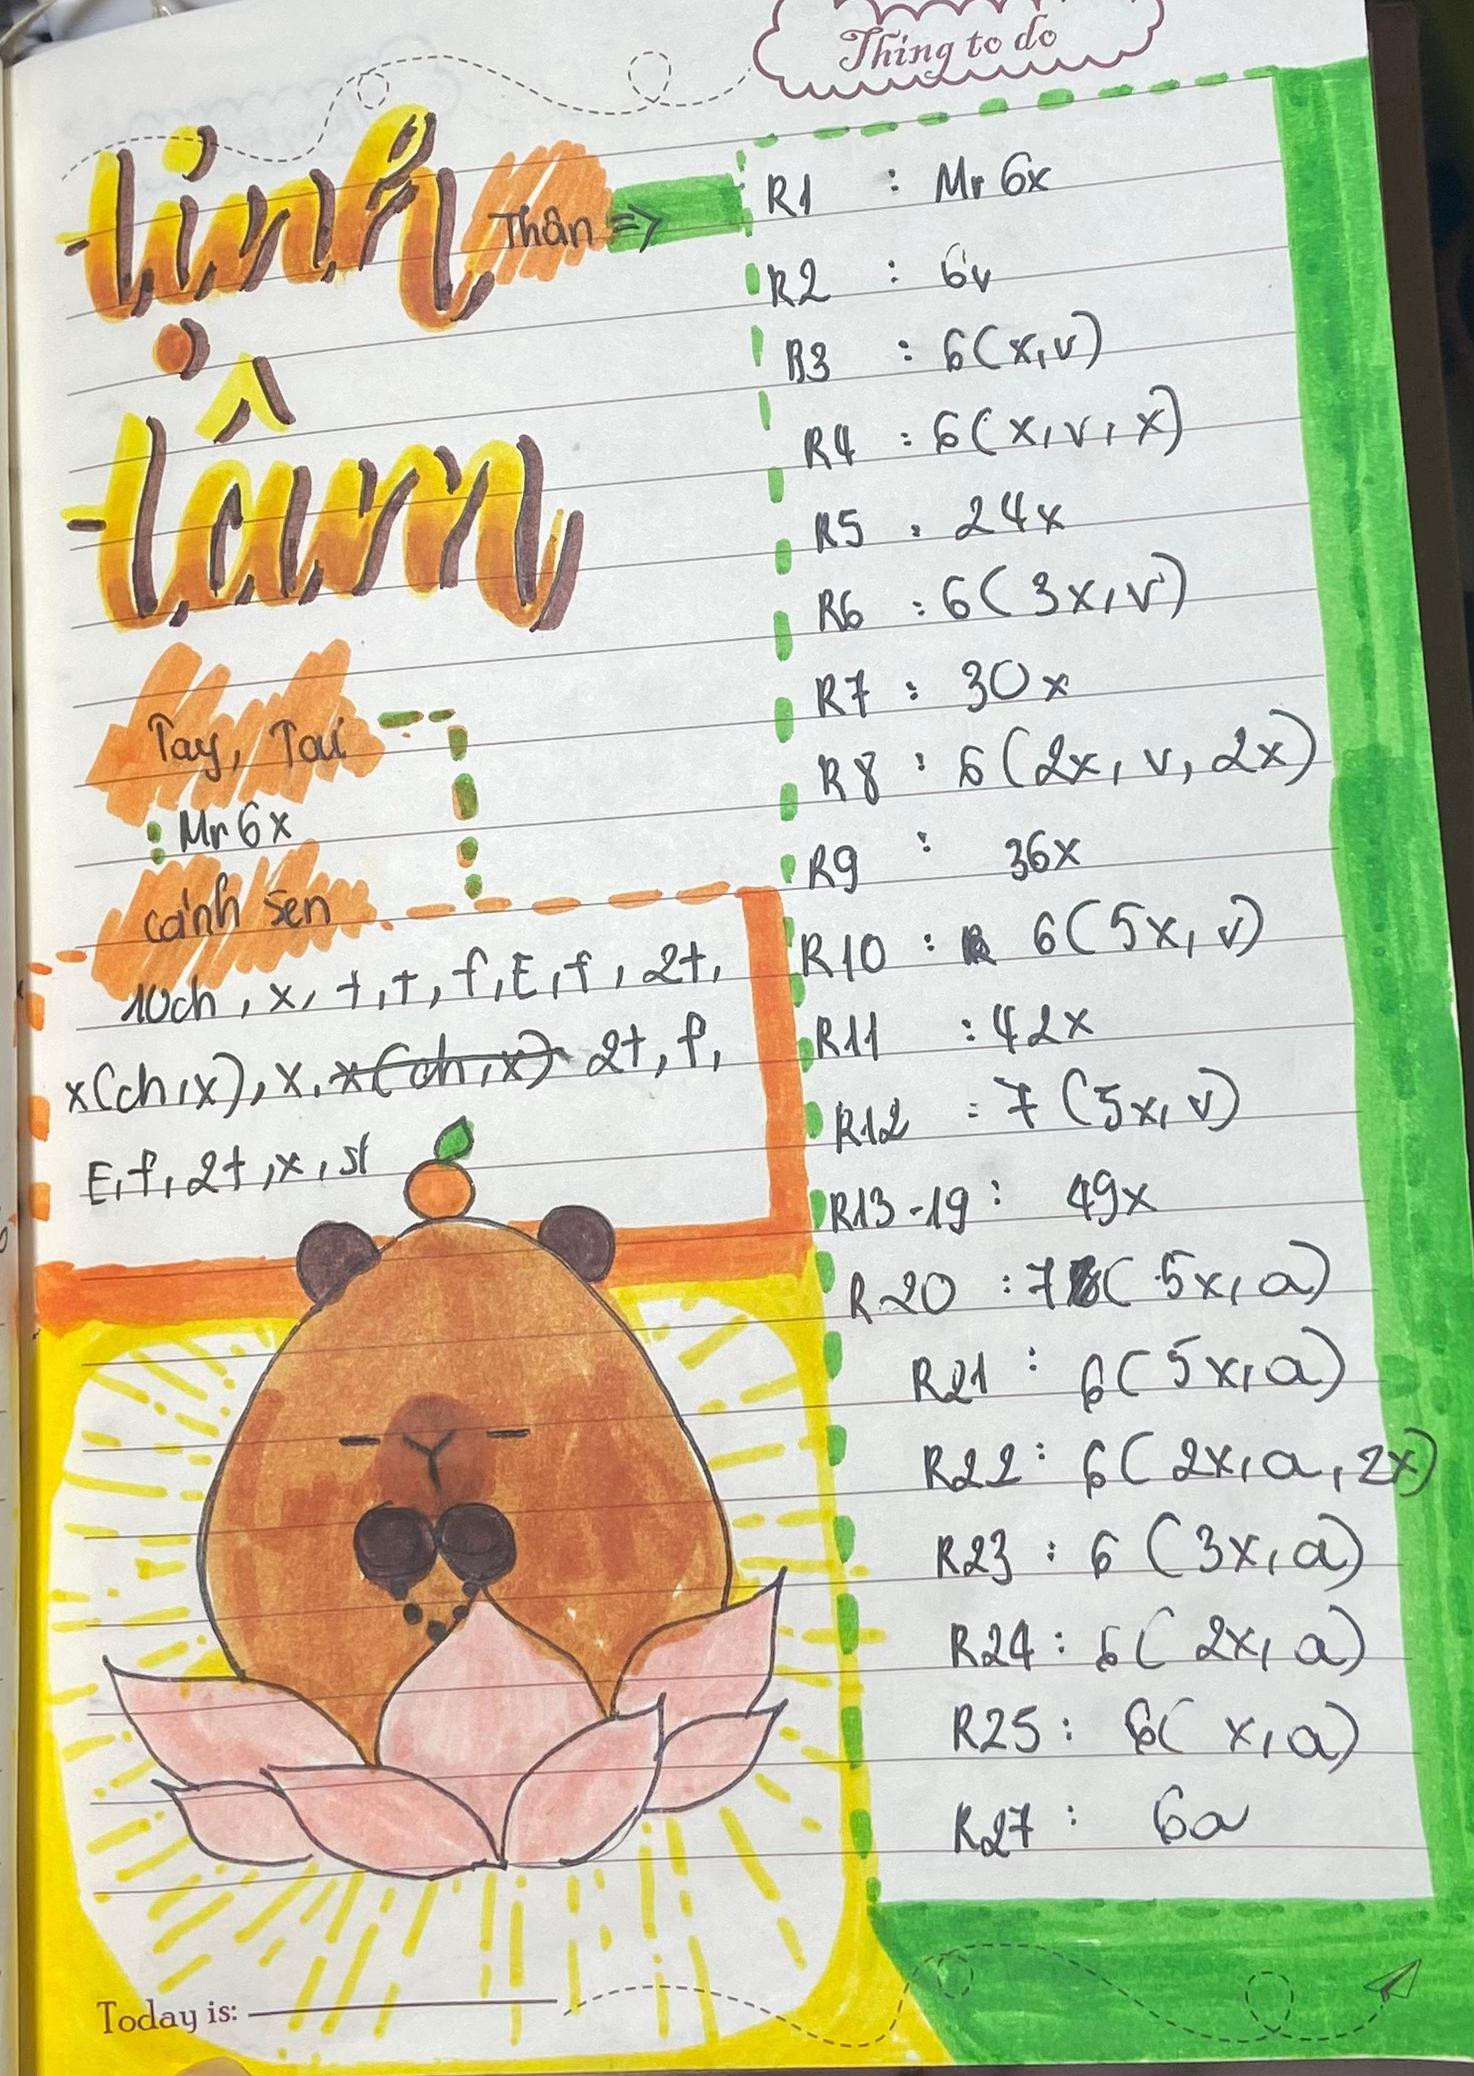 Thing to do
tịnh
tâm
Thân =>
R1 : Mr 6x
R2 : 6v
R3 : 6(x,v)
R4 : 6(x,v,x)
R5 : 24x
R6 : 6(3x,v)
R7 : 30x
R8 : 6(2x, v, 2x)
R9 : 36x
R10 : 6(5x, v)
R11 : 42x
R12 : 7(5x, v)
R13-19 : 49x
R20 : 7(5x, a)
R21 : 6(5x, a)
R22 : 6(2x, a, 2x)
R23 : 6(3x, a)
R24 : 6(2x, a)
R25 : 6(x, a)
R27 : 6a
Tay, Tai
: Mr 6x
cánh sen
10ch, x, t, t, f, E, f, 2t,
x(ch,x), x, x(ch,x) 2t, f,
E, f, 2t, x, sl
Today is: